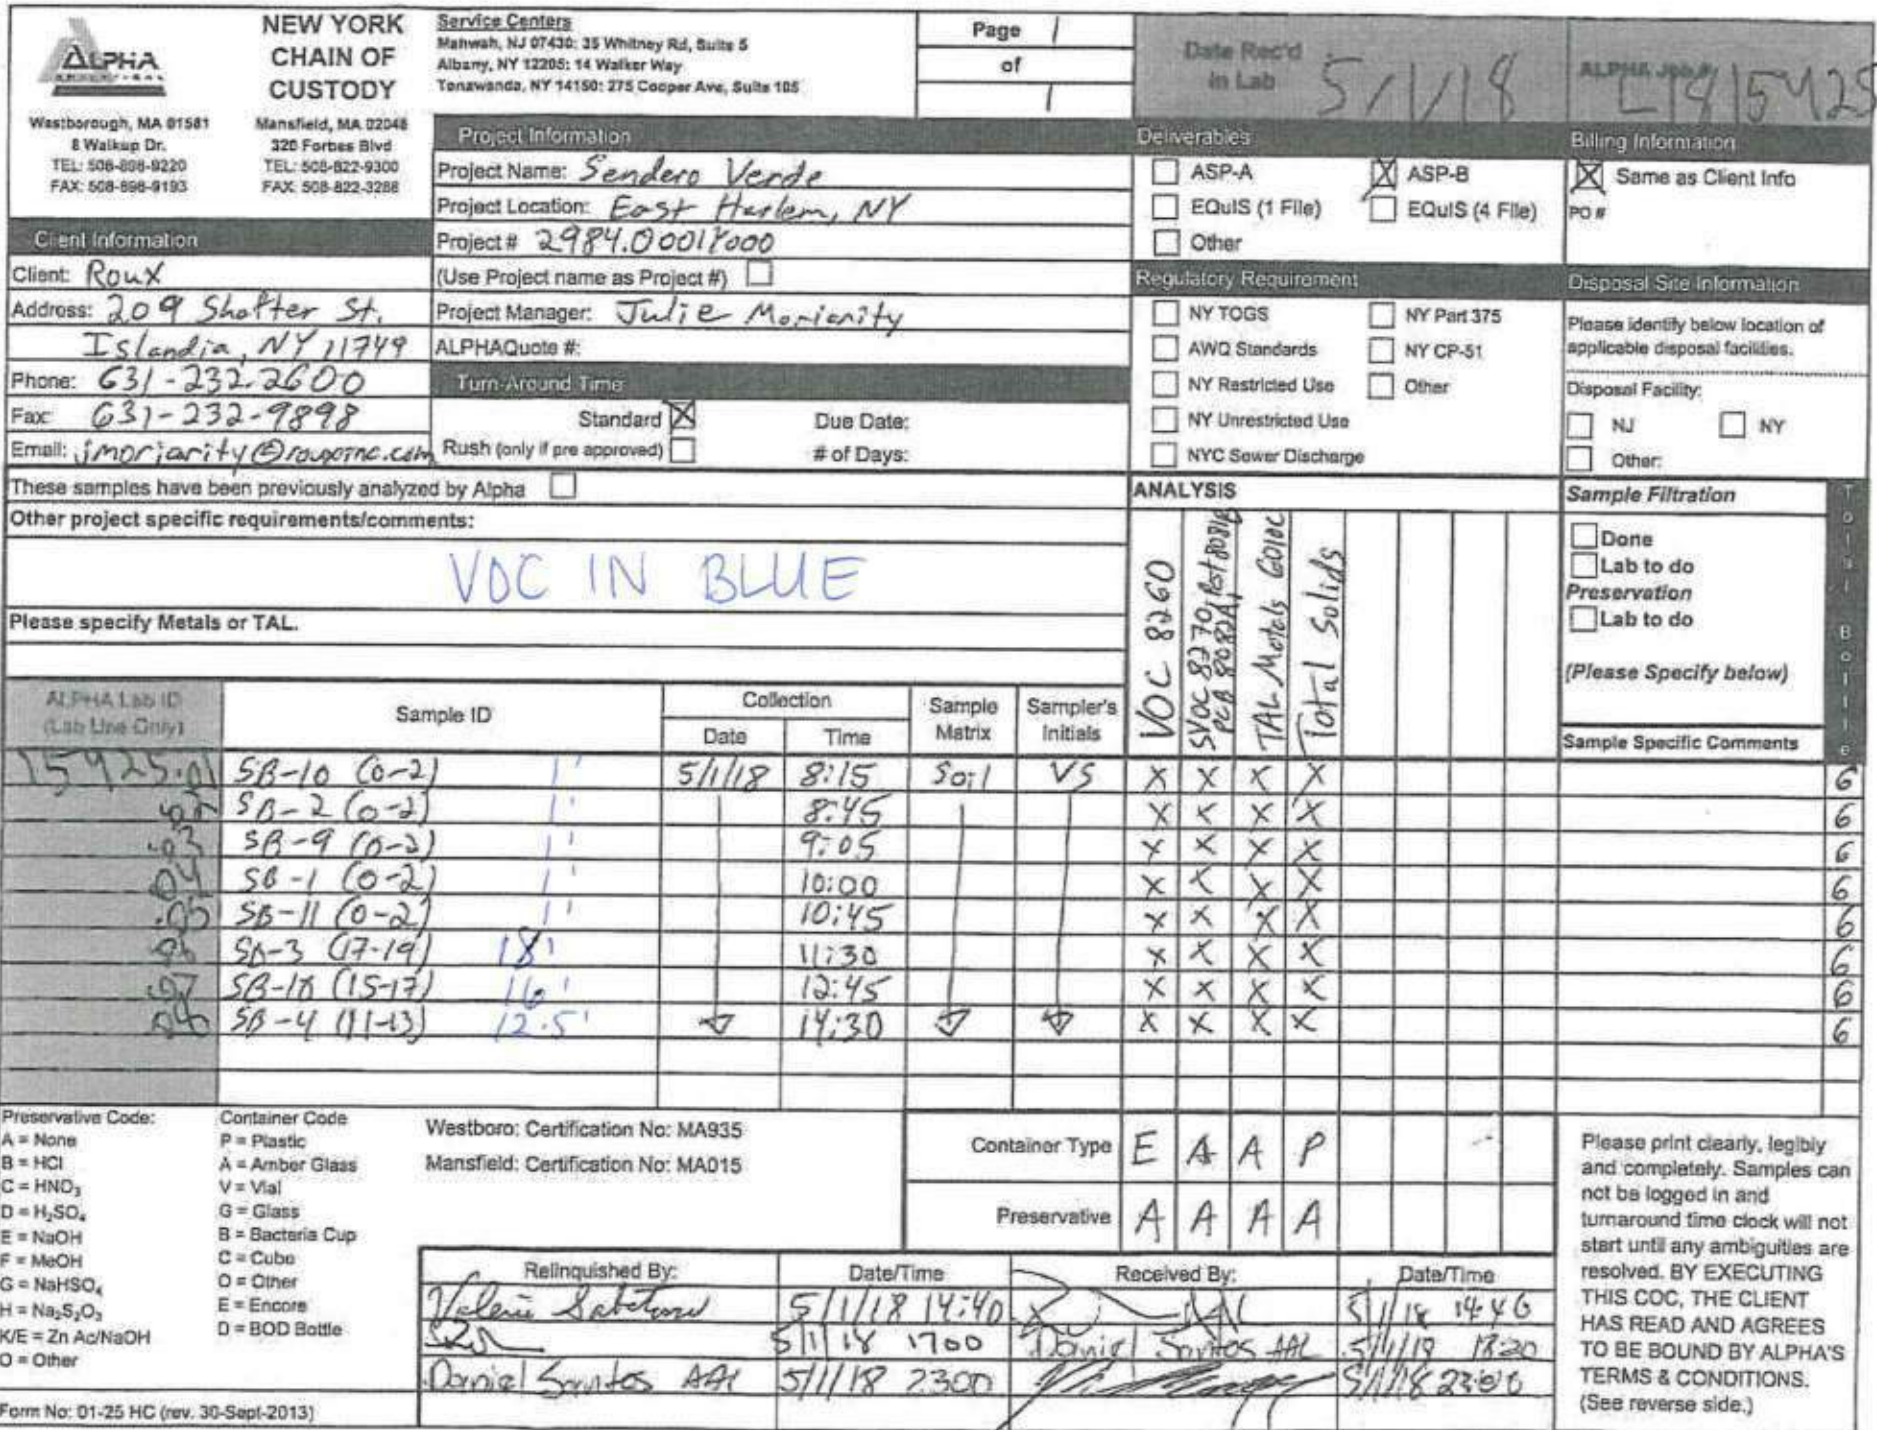 ALPHA
ANALYTICAL
Westborough, MA 01581
8 Walkup Dr.
TEL: 508-898-9220
FAX: 508-898-9193
NEW YORK
CHAIN OF
CUSTODY
Mansfield, MA 02048
320 Forbes Blvd
TEL: 508-822-9300
FAX: 508-822-3288
Service Centers
Mahwah, NJ 07430: 35 Whitney Rd, Suite 5
Albany, NY 12205: 14 Walker Way
Tonawanda, NY 14150: 275 Cooper Ave, Suite 105
Page 1
of
1
Date Rec'd
in Lab 5/1/18
ALPHA Job #
Project Information
Project Name: Sendero Verde
Project Location: East Harlem, NY
Project # 2984.0001Y000
(Use Project name as Project #)
Project Manager: Julie Moriarity
ALPHAQuote #:
Client Information
Client: Roux
Address: 209 Shafter St.
Islandia, NY 11749
Phone: 631-232.2600
Fax: 631-232-9898
Email:
Turn-Around Time
Standard X Due Date:
Rush (only if pre approved) # of Days:
Deliverables
ASP-A X ASP-B
EQuIS (1 File) EQuIS (4 File)
Other
Regulatory Requirement
NY TOGS NY Part 375
AWQ Standards NY CP-51
NY Restricted Use Other
NY Unrestricted Use
NYC Sewer Discharge
Billing Information
X Same as Client Info
PO #
Disposal Site Information
Please identify below location of
applicable disposal facilities.
Disposal Facility:
NJ NY
Other:
These samples have been previously analyzed by Alpha
Other project specific requirements/comments:
VOC IN BLUE
Please specify Metals or TAL.
ANALYSIS
VOC 8260
SVOC 8270, Pest 8081B
PCB 8082A,
TAL Metals 6010C
Total Solids
Sample Filtration
Done
Lab to do
Preservation
Lab to do
(Please Specify below)
Sample Specific Comments
Total Bottle
ALPHA Lab ID
(Lab Use Only)
Sample ID
Collection
Date Time
Sample
Matrix
Sampler's
Initials
15925.01 SB-10 (0-2) 1' 5/1/18 8:15 Soil VS X X X X 6
.02 SB-2 (0-2) 1' 8:45 X X X X 6
.03 SB-9 (0-2) 1' 9:05 X X X X 6
.04 SB-1 (0-2) 1' 10:00 X X X X 6
.05 SB-11 (0-2) 1' 10:45 X X X X 6
.06 SB-3 (17-19) 18' 11:30 X X X X 6
.07 SB-10 (15-17) 16' 12:45 X X X X 6
.08 SB-4 (11-13) 12.5' 14:30 X X X X 6
Preservative Code:
A = None
B = HCl
C = HNO₃
D = H₂SO₄
E = NaOH
F = MeOH
G = NaHSO₄
H = Na₂S₂O₃
K/E = Zn Ac/NaOH
O = Other
Container Code
P = Plastic
A = Amber Glass
V = Vial
G = Glass
B = Bacteria Cup
C = Cube
O = Other
E = Encore
D = BOD Bottle
Westboro: Certification No: MA935
Mansfield: Certification No: MA015
Container Type E A A P
Preservative A A A A
Relinquished By: Date/Time Received By: Date/Time
Valerie 5/1/18 14:40 5/1/18
5/1/18 1700 Daniel Santos AAL
Daniel Santos AAL 5/1/18 2300 5/1/18
Please print clearly, legibly
and completely. Samples can
not be logged in and
turnaround time clock will not
start until any ambiguities are
resolved. BY EXECUTING
THIS COC, THE CLIENT
HAS READ AND AGREES
TO BE BOUND BY ALPHA'S
TERMS & CONDITIONS.
(See reverse side.)
Form No: 01-25 HC (rev. 30-Sept-2013)